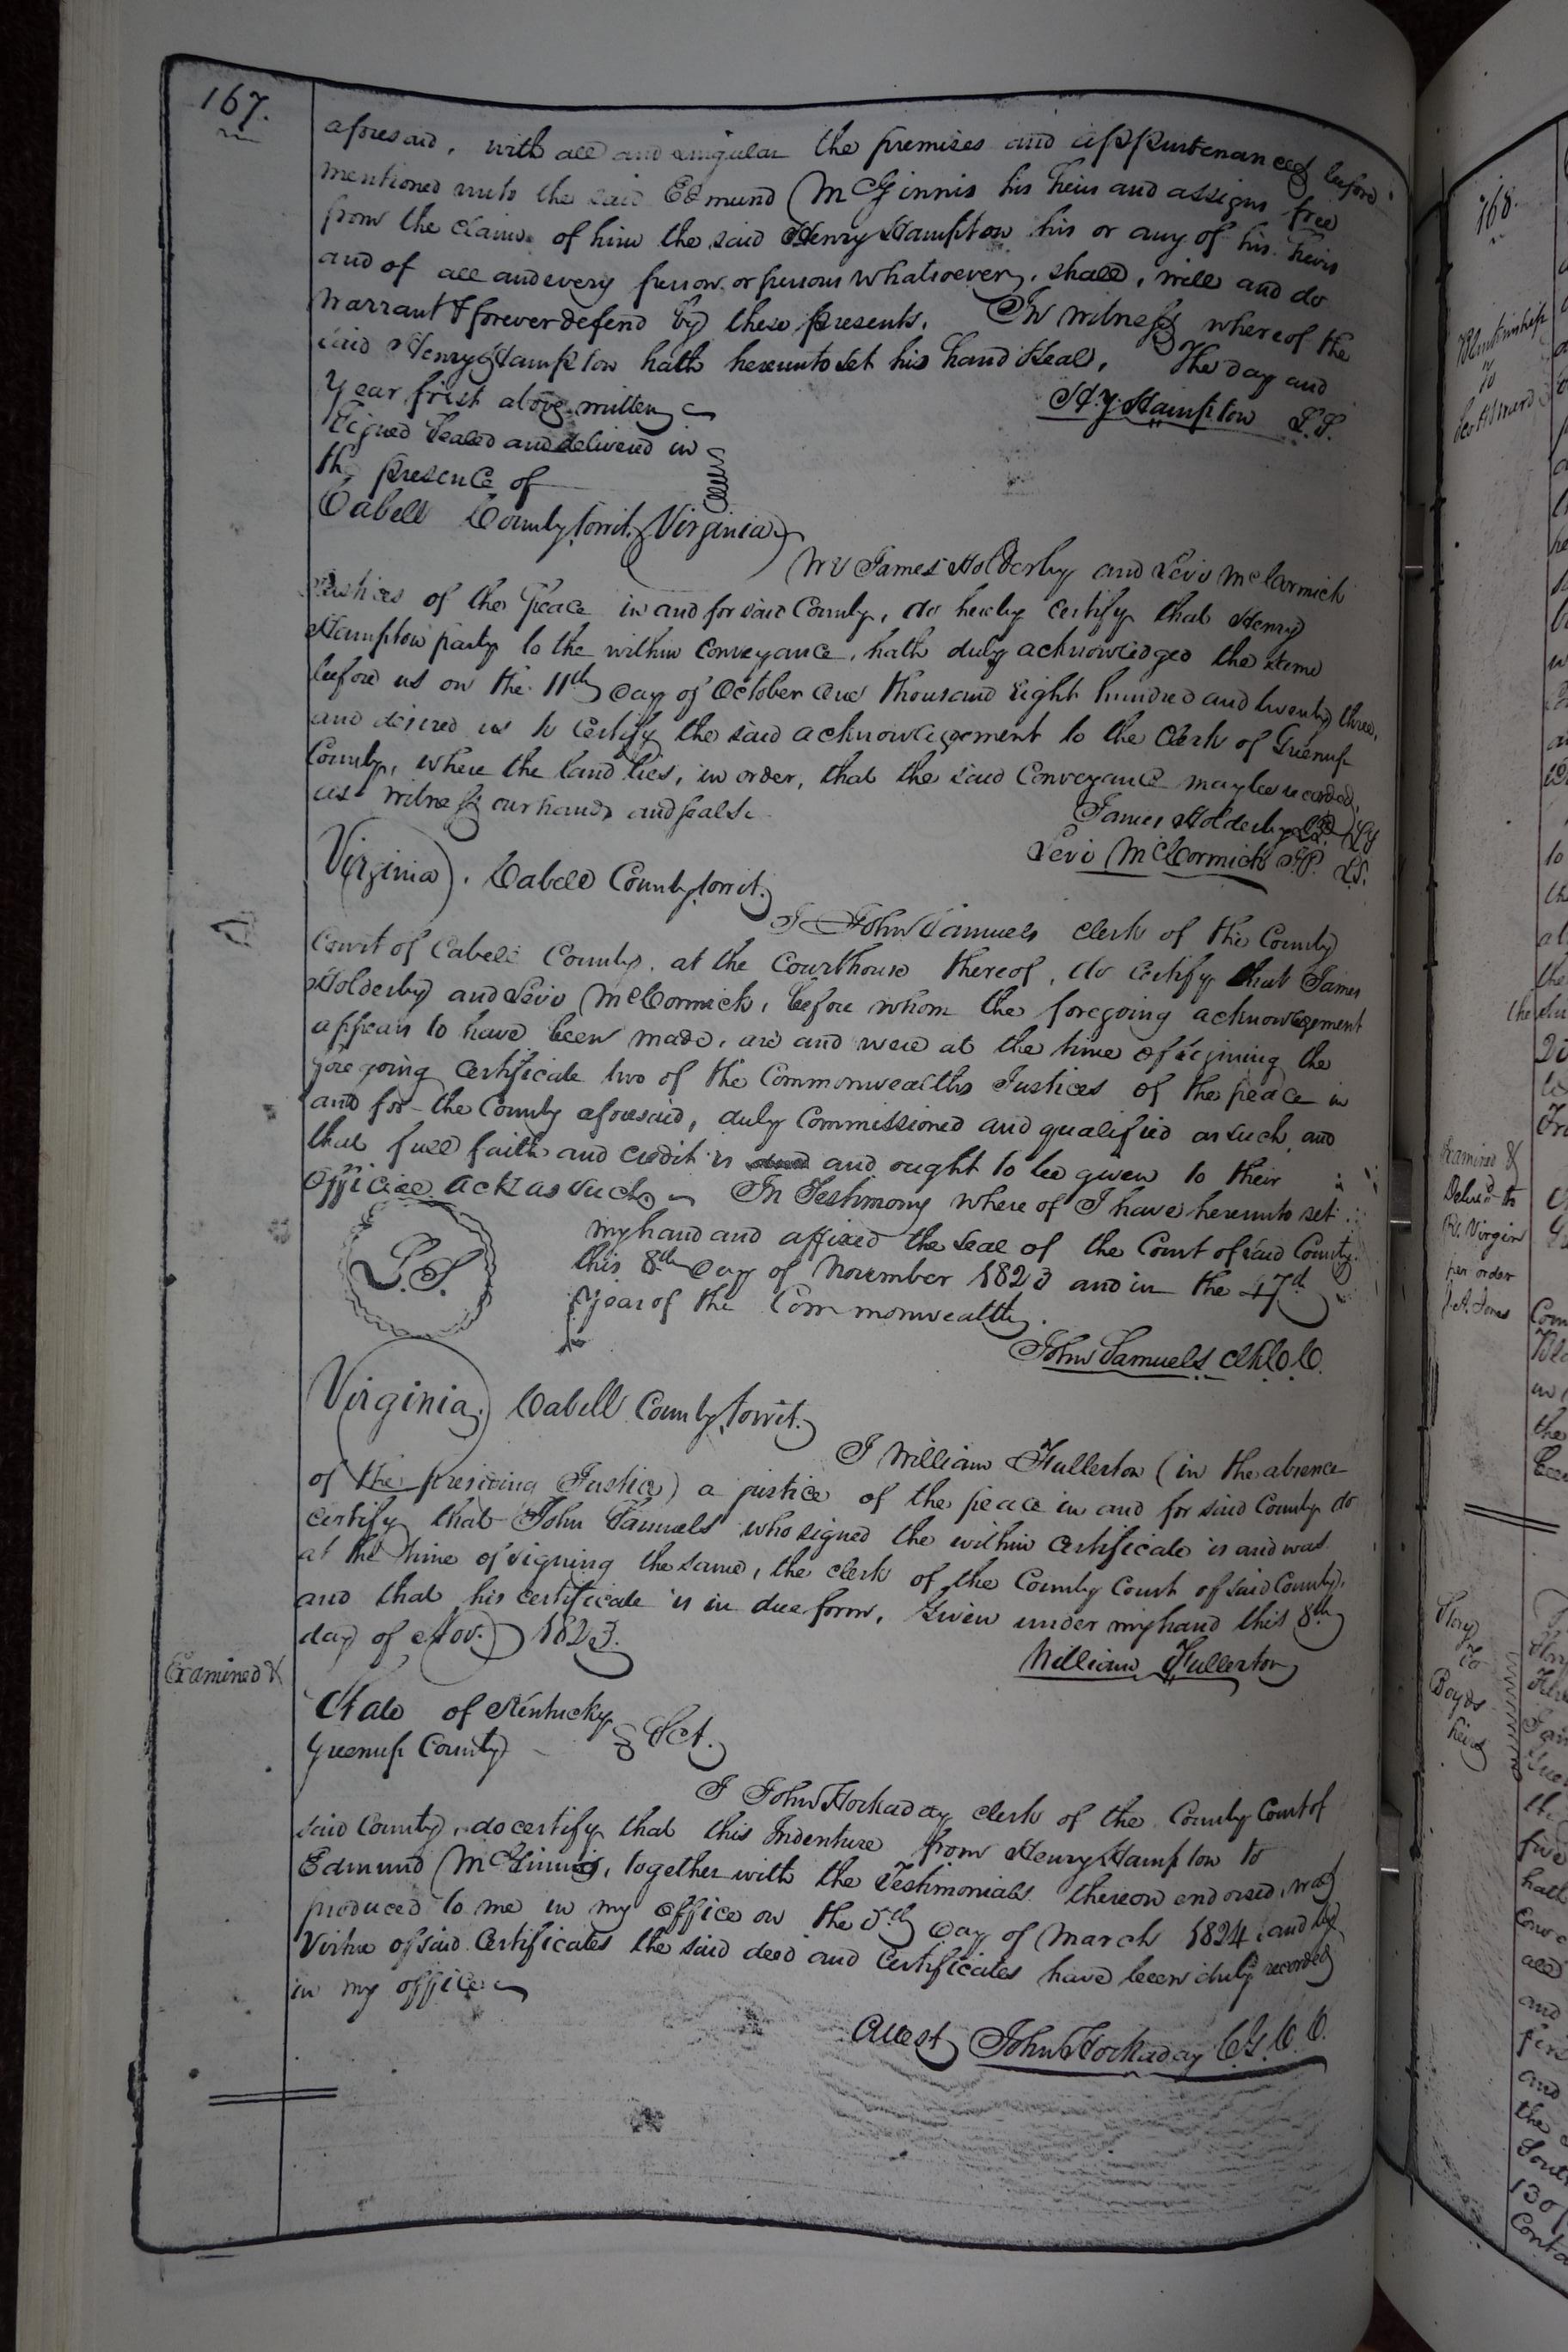 167.
aforesaid, with all and singular the premises and appurtenances before
mentioned unto the said Edmund McGinnis his heirs and assigns free
from the claim of him the said Henry Hampton his or any of his heirs
and of all and every person or persons whatsoever, shall, will and do
warrant & forever defend by these presents. In witness whereof the
said Henry Hampton hath hereunto set his hand & seal, The day and
Year first above written
Hy. Hampton L.S.
Signed Sealed and delivered in
the presence of
Cabell County, towit, Virginia,
We James Holderby and Levi McCormick
Justices of the Peace in and for said County, do hereby certify that Henry
Hampton party to the within Conveyance, hath duly acknowledged the same
before us on the 11th day of October One thousand Eight hundred and twenty three,
and desired us to Certify the said acknowledgement to the Clerk of Greenup
County, where the land lies, in order, that the said Conveyance may be recorded,
as witness our hands and seals.
James Holderby
Levi McCormick J.P. L.S.
Virginia, Cabell County, towit.
I John Samuels Clerk of the County
Court of Cabell County, at the Courthouse thereof, do certify that James
Holderby and Levi McCormick, before whom the foregoing acknowledgement
appears to have been made, are and were at the time of signing the
foregoing Certificate two of the Commonwealths Justices of the peace in
and for the County aforesaid, duly Commissioned and qualified as such, and
that full faith and credit is and ought to be given to their
Official acts as such. In Testimony where of I have hereunto set
my hand and affixed the seal of the Court of said County
this 8th day of November 1823 and in the 47th
year of the Commonwealth.
L.S.
John Samuels Clk C.C.
Virginia, Cabell County, towit.
I William Fullerton (in the absence
of the presiding Justice) a justice of the peace in and for said County do
certify that John Samuels who signed the within certificate is and was
at the time of signing the same, the clerk of the County Court of said County,
and that his certificate is in due form, Given under my hand this 8th
day of Nov. 1823.
William Fullerton
Examined &
State of Kentucky
Greenup County Sct.
I John Hockaday clerk of the County Court of
said County, do certify that this Indenture from Henry Hampton to
Edmund McGinnis, together with the Testimonials thereon endorsed, was
produced to me in my office on the 5th day of March 1824, and by
Virtue of said Certificates the said deed and Certificates have been duly recorded
in my office
Attest John Hockaday C.G.C.C.
168.
Blankinship
to
Examined &
Deliver'd to
R. Virgin
per order
Story
to
Boyds
heirs